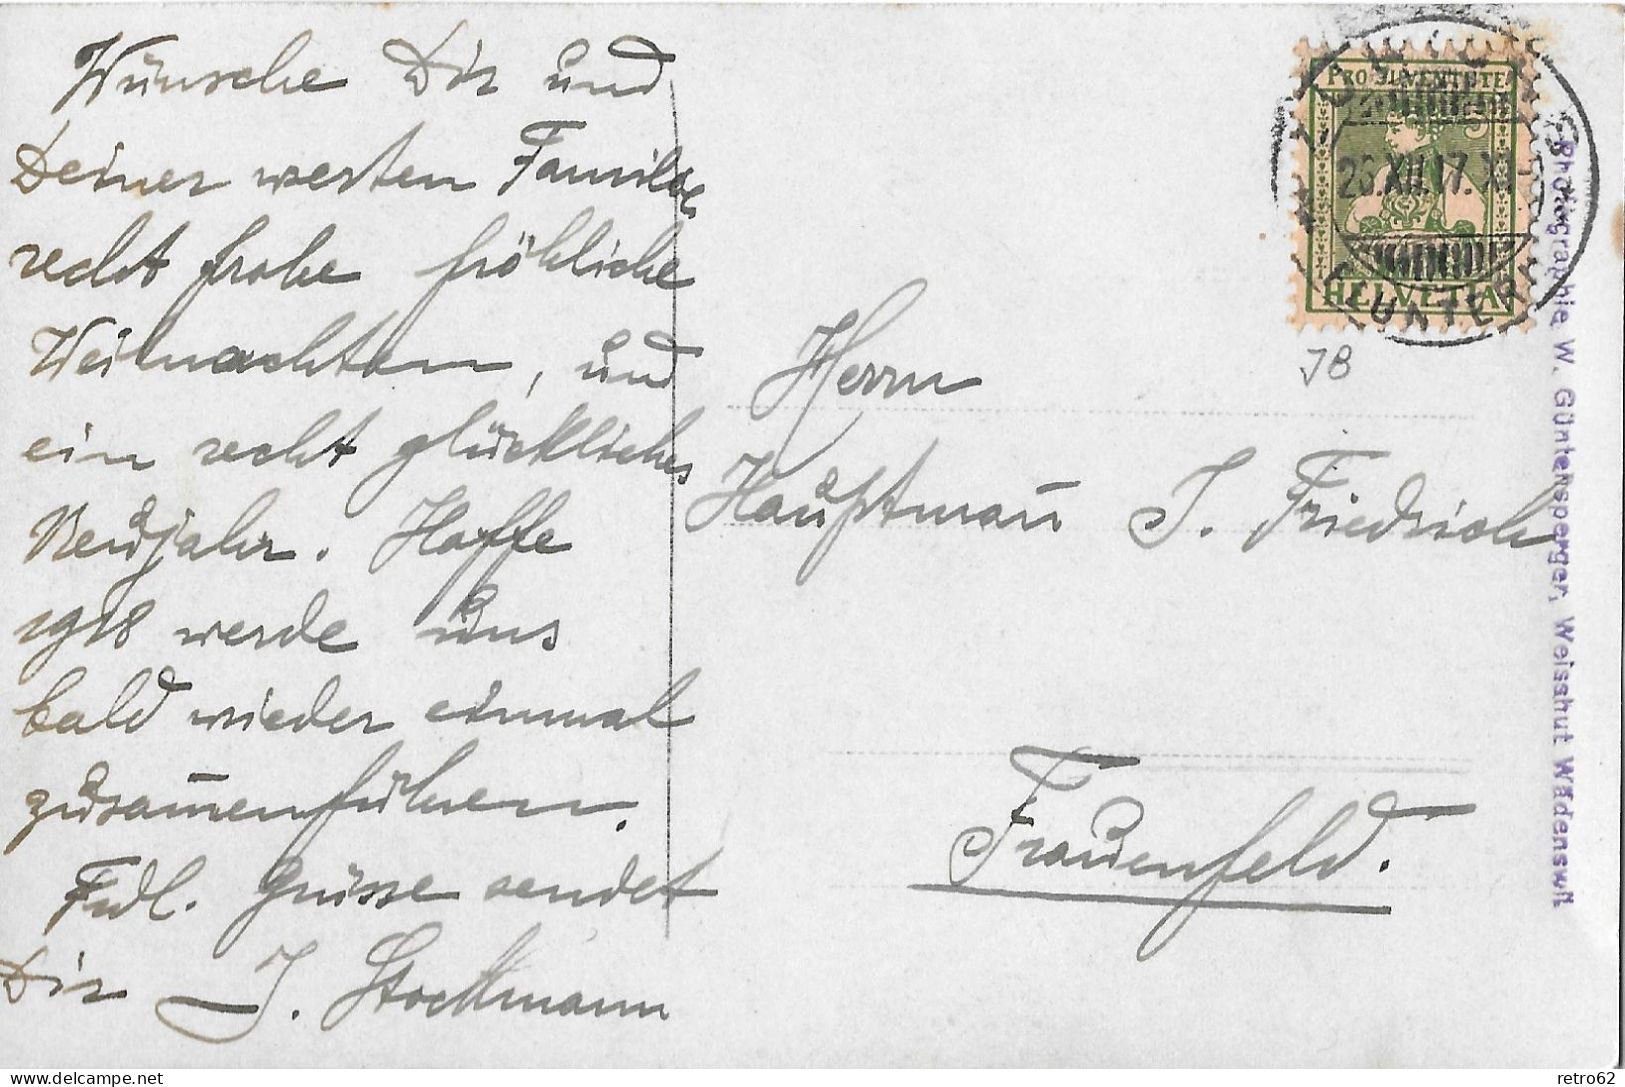 Wünsche Dir und
Deiner werten Familie
recht frohe fröhliche
Weihnachten, und
ein recht glückliches
Neujahr. Hoffe
1918 werde uns
bald wieder einmal
zusam̄enführen.
Frdl. Grüsse sendet
Dir J. Stockmann
PRO JUVENTUTE
26.XII.17.XI
HELVETIA
JB
Herrn
Hauptman̄ J. Friedrich
Frauenfeld.
Photographie W. Güntensperger, Weisshut Wädenswil
delcampe.net
retro62